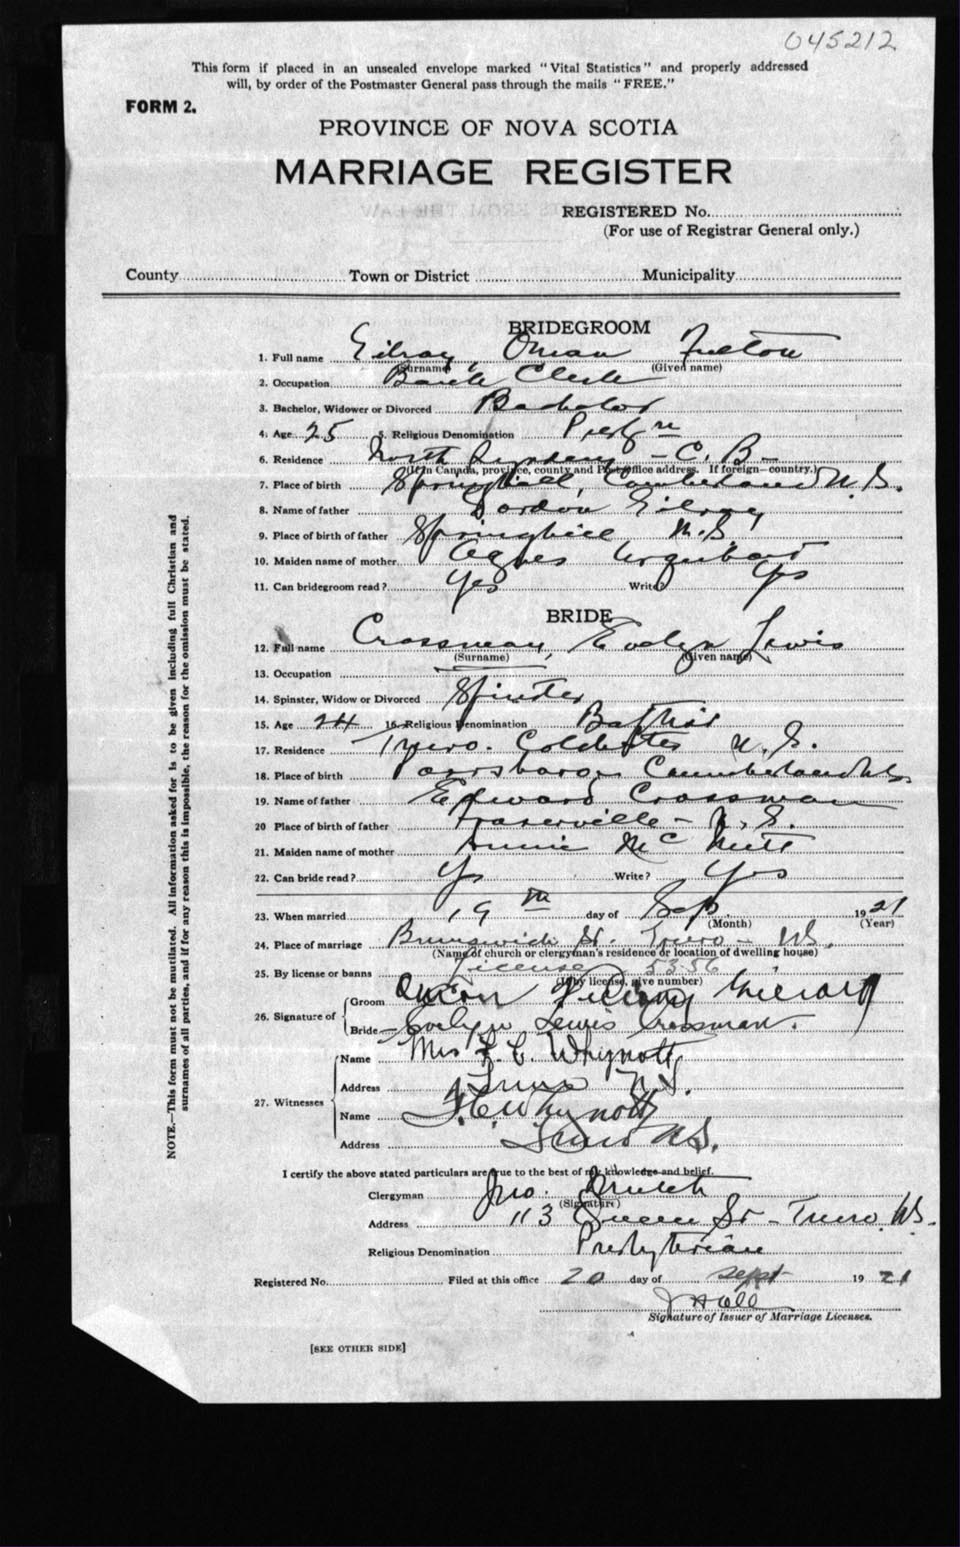 045212
This form if placed in an unsealed envelope marked "Vital Statistics" and properly addressed
will, by order of the Postmaster General pass through the mails "FREE."
FORM 2.
PROVINCE OF NOVA SCOTIA
MARRIAGE REGISTER
REGISTERED No.
(For use of Registrar General only.)
County Town or District Municipality
BRIDEGROOM
1. Full name Gilroy, Oman Fulton
(Surname) (Given name)
2. Occupation Bank Clerk
3. Bachelor, Widower or Divorced Bachelor
4. Age 25 5. Religious Denomination Presbyn
6. Residence North Sydney - C. B -
(If in Canada, province, county and Post office address. If foreign—country.)
7. Place of birth Springhill, Cumberland N. S.
8. Name of father Gordon Gilroy
9. Place of birth of father Springhill N.S.
10. Maiden name of mother Agnes Urquhart
11. Can bridegroom read? Yes Write? Yes
BRIDE
12. Full name Crossman, Evelyn Lewis
(Surname) (Given name)
13. Occupation
14. Spinster, Widow or Divorced Spinster
15. Age 24 16. Religious Denomination Baptist
17. Residence Truro. Colchester N. S.
18. Place of birth Parrsboro, Cumberland NS
19. Name of father Edward Crossman
20 Place of birth of father Fraserville - N. S.
21. Maiden name of mother Annie McNutt
22. Can bride read? Yes Write? Yes
23. When married 19th day of Sep. 1921
(Month) (Year)
24. Place of marriage Brunswick St. Truro - NS.
(Name of church or clergyman's residence or location of dwelling house)
25. By license or banns License 5356
(If by license, give number)
26. Signature of Groom Gilroy
Bride Evelyn Lewis Crossman.
27. Witnesses
Name Mrs F. C. Whynott
Address Truro N.S.
Name F.C. Whynott
Address Truro N.S.
I certify the above stated particulars are true to the best of my knowledge and belief.
Clergyman Jno.
(Signature)
Address 113 Queen St - Truro NS.
Religious Denomination Presbyterian
Registered No. Filed at this office 20 day of Sept 1921
Signature of Issuer of Marriage Licenses.
[SEE OTHER SIDE]
NOTE.—This form must not be mutilated. All information asked for is to be given including full Christian and
surnames of all parties, and if for any reason this is impossible, the reason for the omission must be stated.